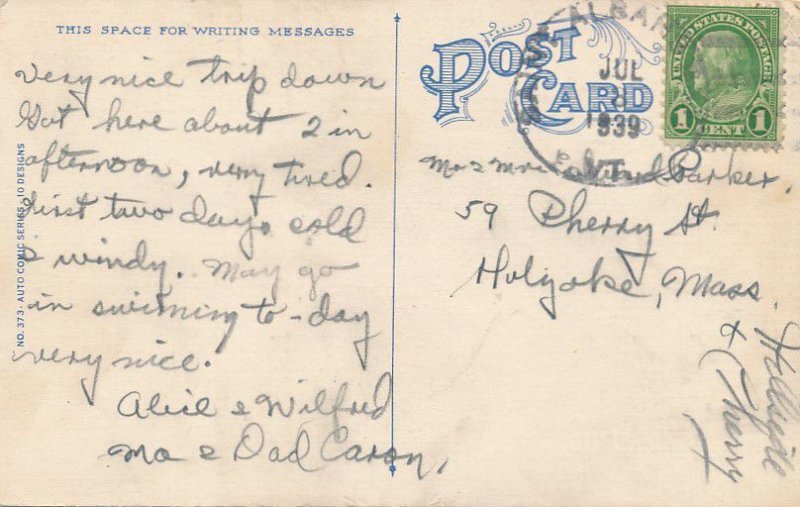 THIS SPACE FOR WRITING MESSAGES
Very nice trip down
Got here about 2 in
afternoon, very tired.
First two days cold
& windy. May go
in swimming to-day
very nice.
Alice & Wilfred
Ma & Dad Caron,
NO. 373 - AUTO COMIC SERIES - 10 DESIGNS
POST CARD
ALBAN
JUL
8
1939
VT.
UNITED STATES POSTAGE
1 CENT 1
Mr & Mrs Parker,
59 Cherry St.
Holyoke, Mass.
Hillside
& Cherry